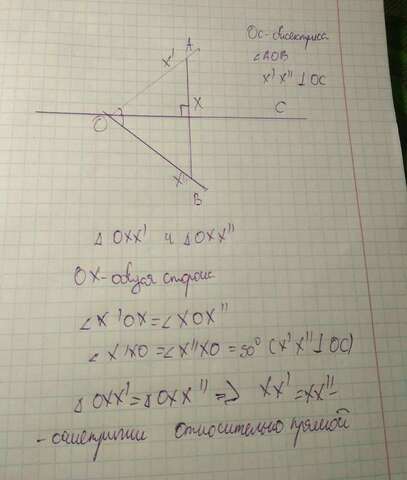 OC - биссектриса
∠AOB
X'X'' ⊥ OC
A
X'
X
C
O
X''
B
Δ OXX' и Δ OXX''
OX - общая сторона
∠X'OX = ∠XOX''
∠X'XO = ∠X''XO = 90° (X'X'' ⊥ OC)
Δ OXX' = Δ OXX'' ⇒ XX' = XX'' -
- симетричны относительно прямой